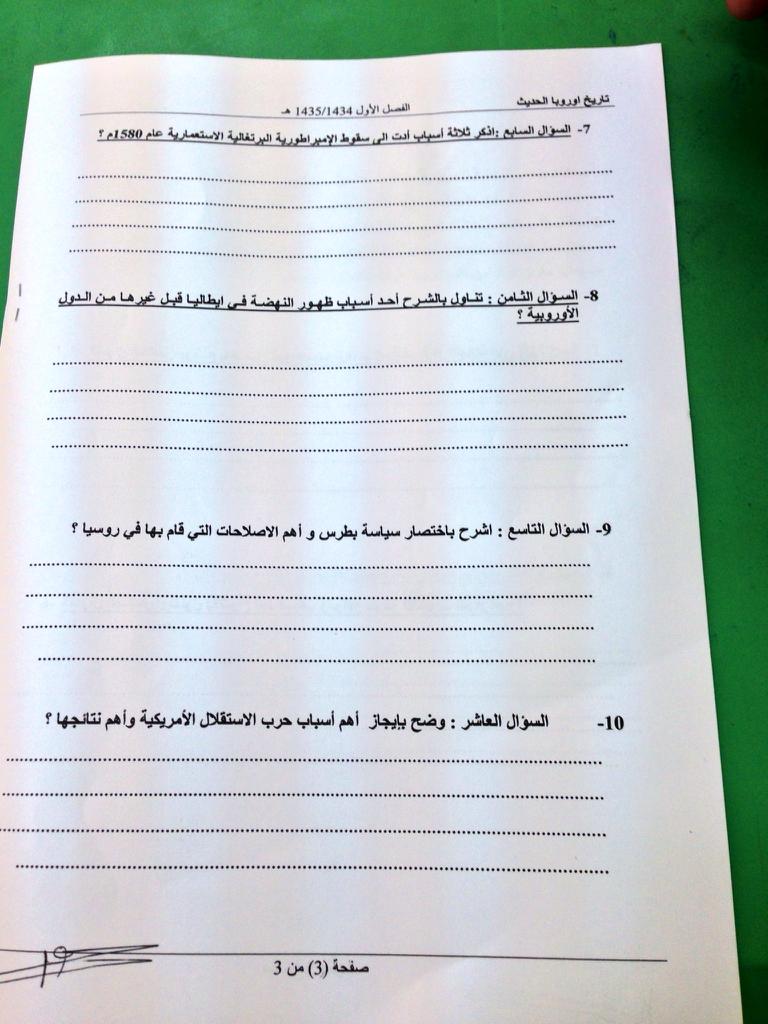 تاريخ اوروبا الحديث الفصل الأول 1435/1434 هـ
7- السؤال السابع :اذكر ثلاثة أسباب أدت الى سقوط الإمبراطورية البرتغالية الاستعمارية عام 1580م ؟
8- السؤال الثامن : تناول بالشرح أحد أسباب ظهور النهضة في ايطاليا قبل غيرها من الدول
الأوروبية ؟
9- السؤال التاسع : اشرح باختصار سياسة بطرس و أهم الاصلاحات التي قام بها في روسيا ؟
10- السؤال العاشر : وضح بإيجاز أهم أسباب حرب الاستقلال الأمريكية وأهم نتائجها ؟
صفحة (3) من 3